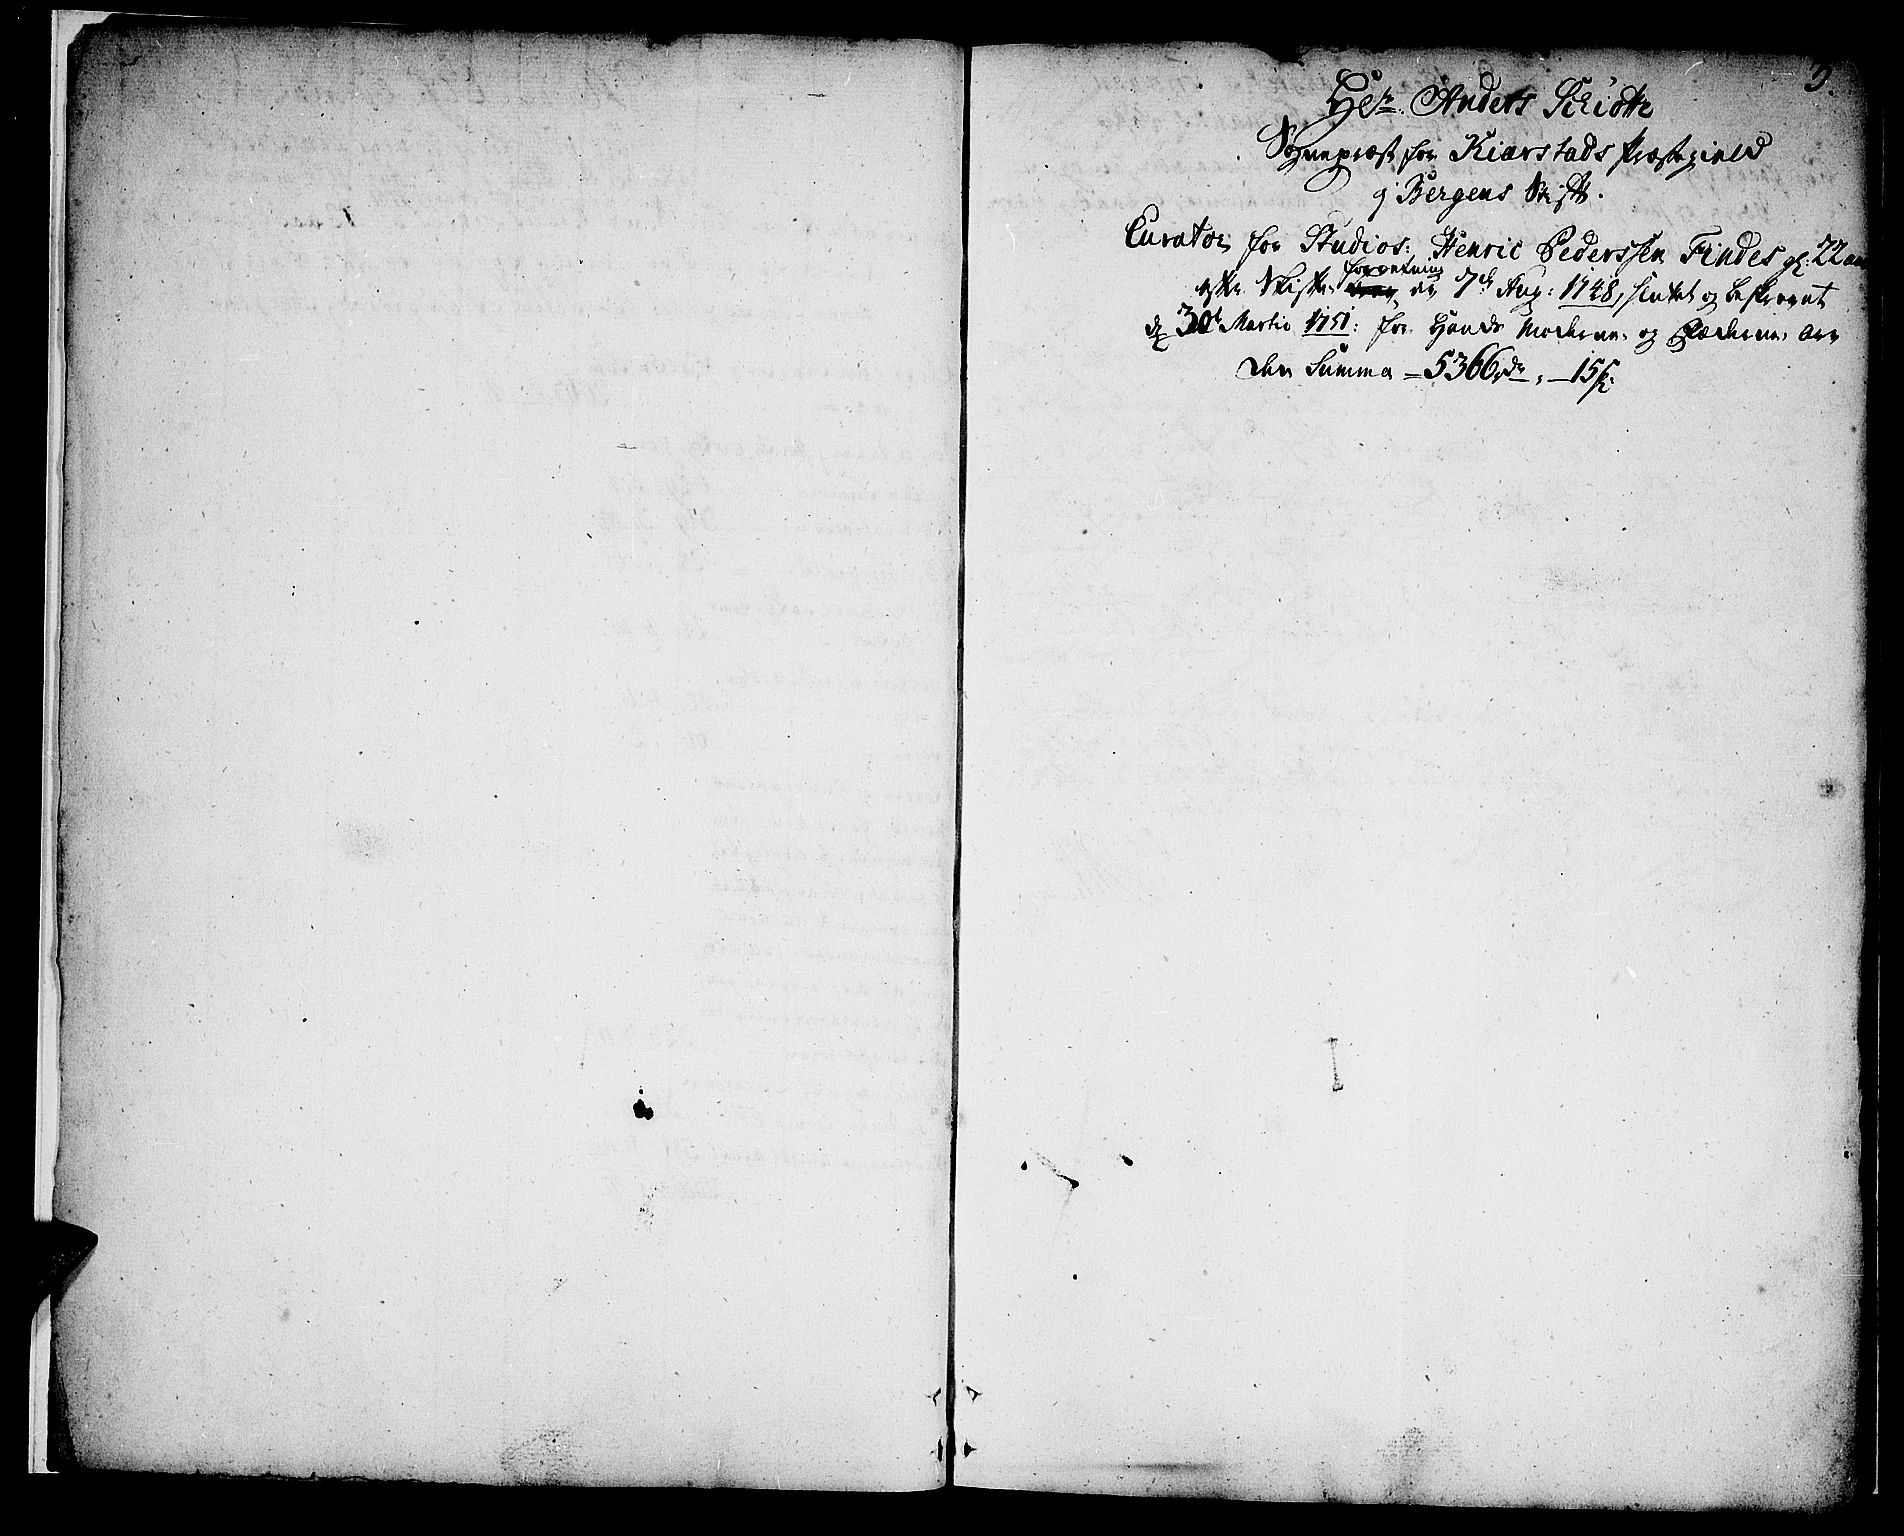 3.
Hr. Anders Schiøtz
Sognepræst for Kiarstads Præstegield
i Bergens Stift.
Curator for Studios: Henric Pederssen Findes gl: 22 aar
efter Skifte forretning de 7de Aug: 1748, sluttet og beskrevet
d 30te Martio 1751: for Hands Moderne, og Fæderne, arv
den Summa - 5366 rdr, - 15 s: